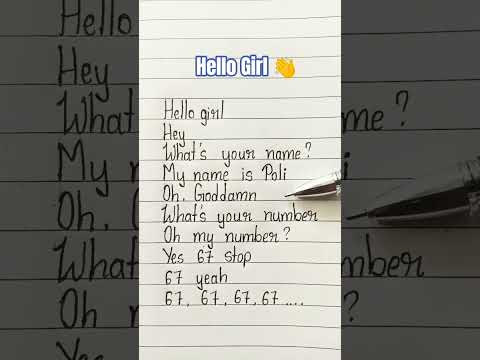 Hello Girl 👋
Hello girl
Hey
What's your name?
My name is Poli
Oh, Goddamn
What's your number
Oh my number?
Yes 67 stop
67 yeah
67, 67, 67, 67 ....